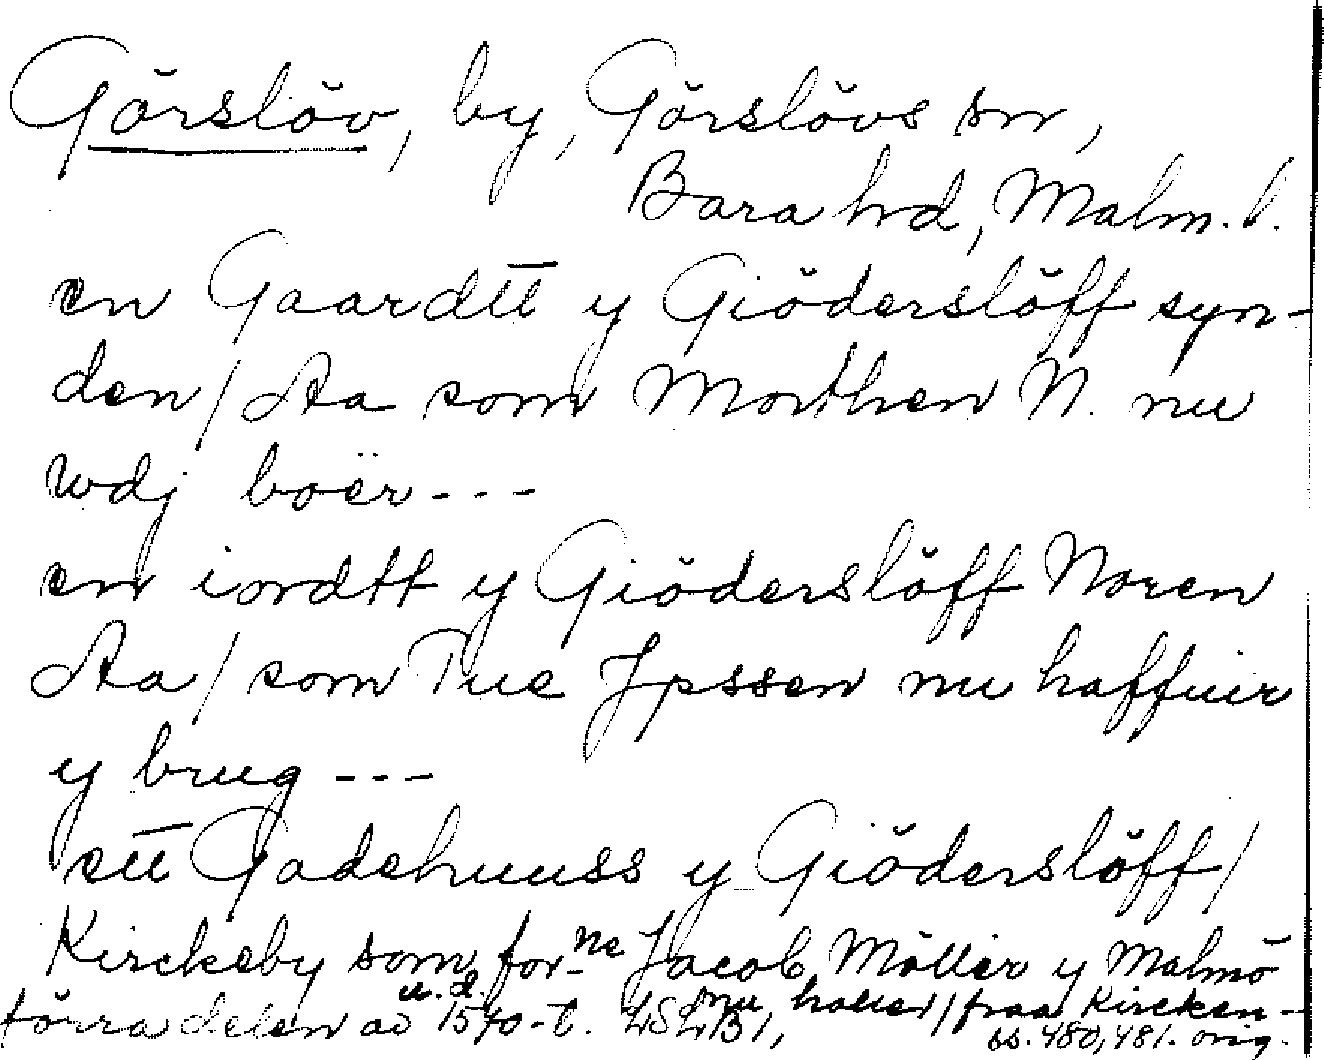 Görslöv, by, Görslövs sn,
Bara hrd, Malm. l.
en Gaardtt y Giöderslöff syn-
den/Aa som Morthen N. nu
wdj boër---
en iordtt y Giöderslöff Noren
Aa/som Tue Jpssen nu haffuir
y brug---
ett Gadehuuss y Giöderslöff/
Kirckeby som for-ne Jacob Möllir y Malmö
nu haller/fraa Kircken--
u.d.
förra delen av 1540-t. LSLB1, ss. 480, 481. orig.